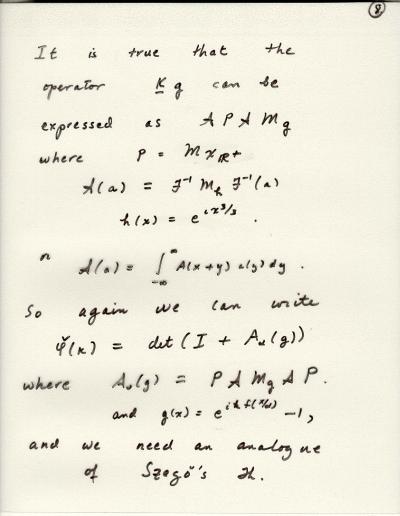 8
It is true that the
operator K g can be
expressed as A P A M_g
where P = M χ_ℝ+
A(a) = F⁻¹ M_h F⁻¹(a)
h(x) = e^{ix³/3} .
or A(a) = ∫_{-∞}^{∞} A(x+y) a(y) dy .
So again we can write
φ̌(k) = det (I + A_α(g))
where A_α(g) = P A M_g A P.
and g(x) = e^{ik f(x/α)} − 1,
and we need an analogue
of Szegö's Th.